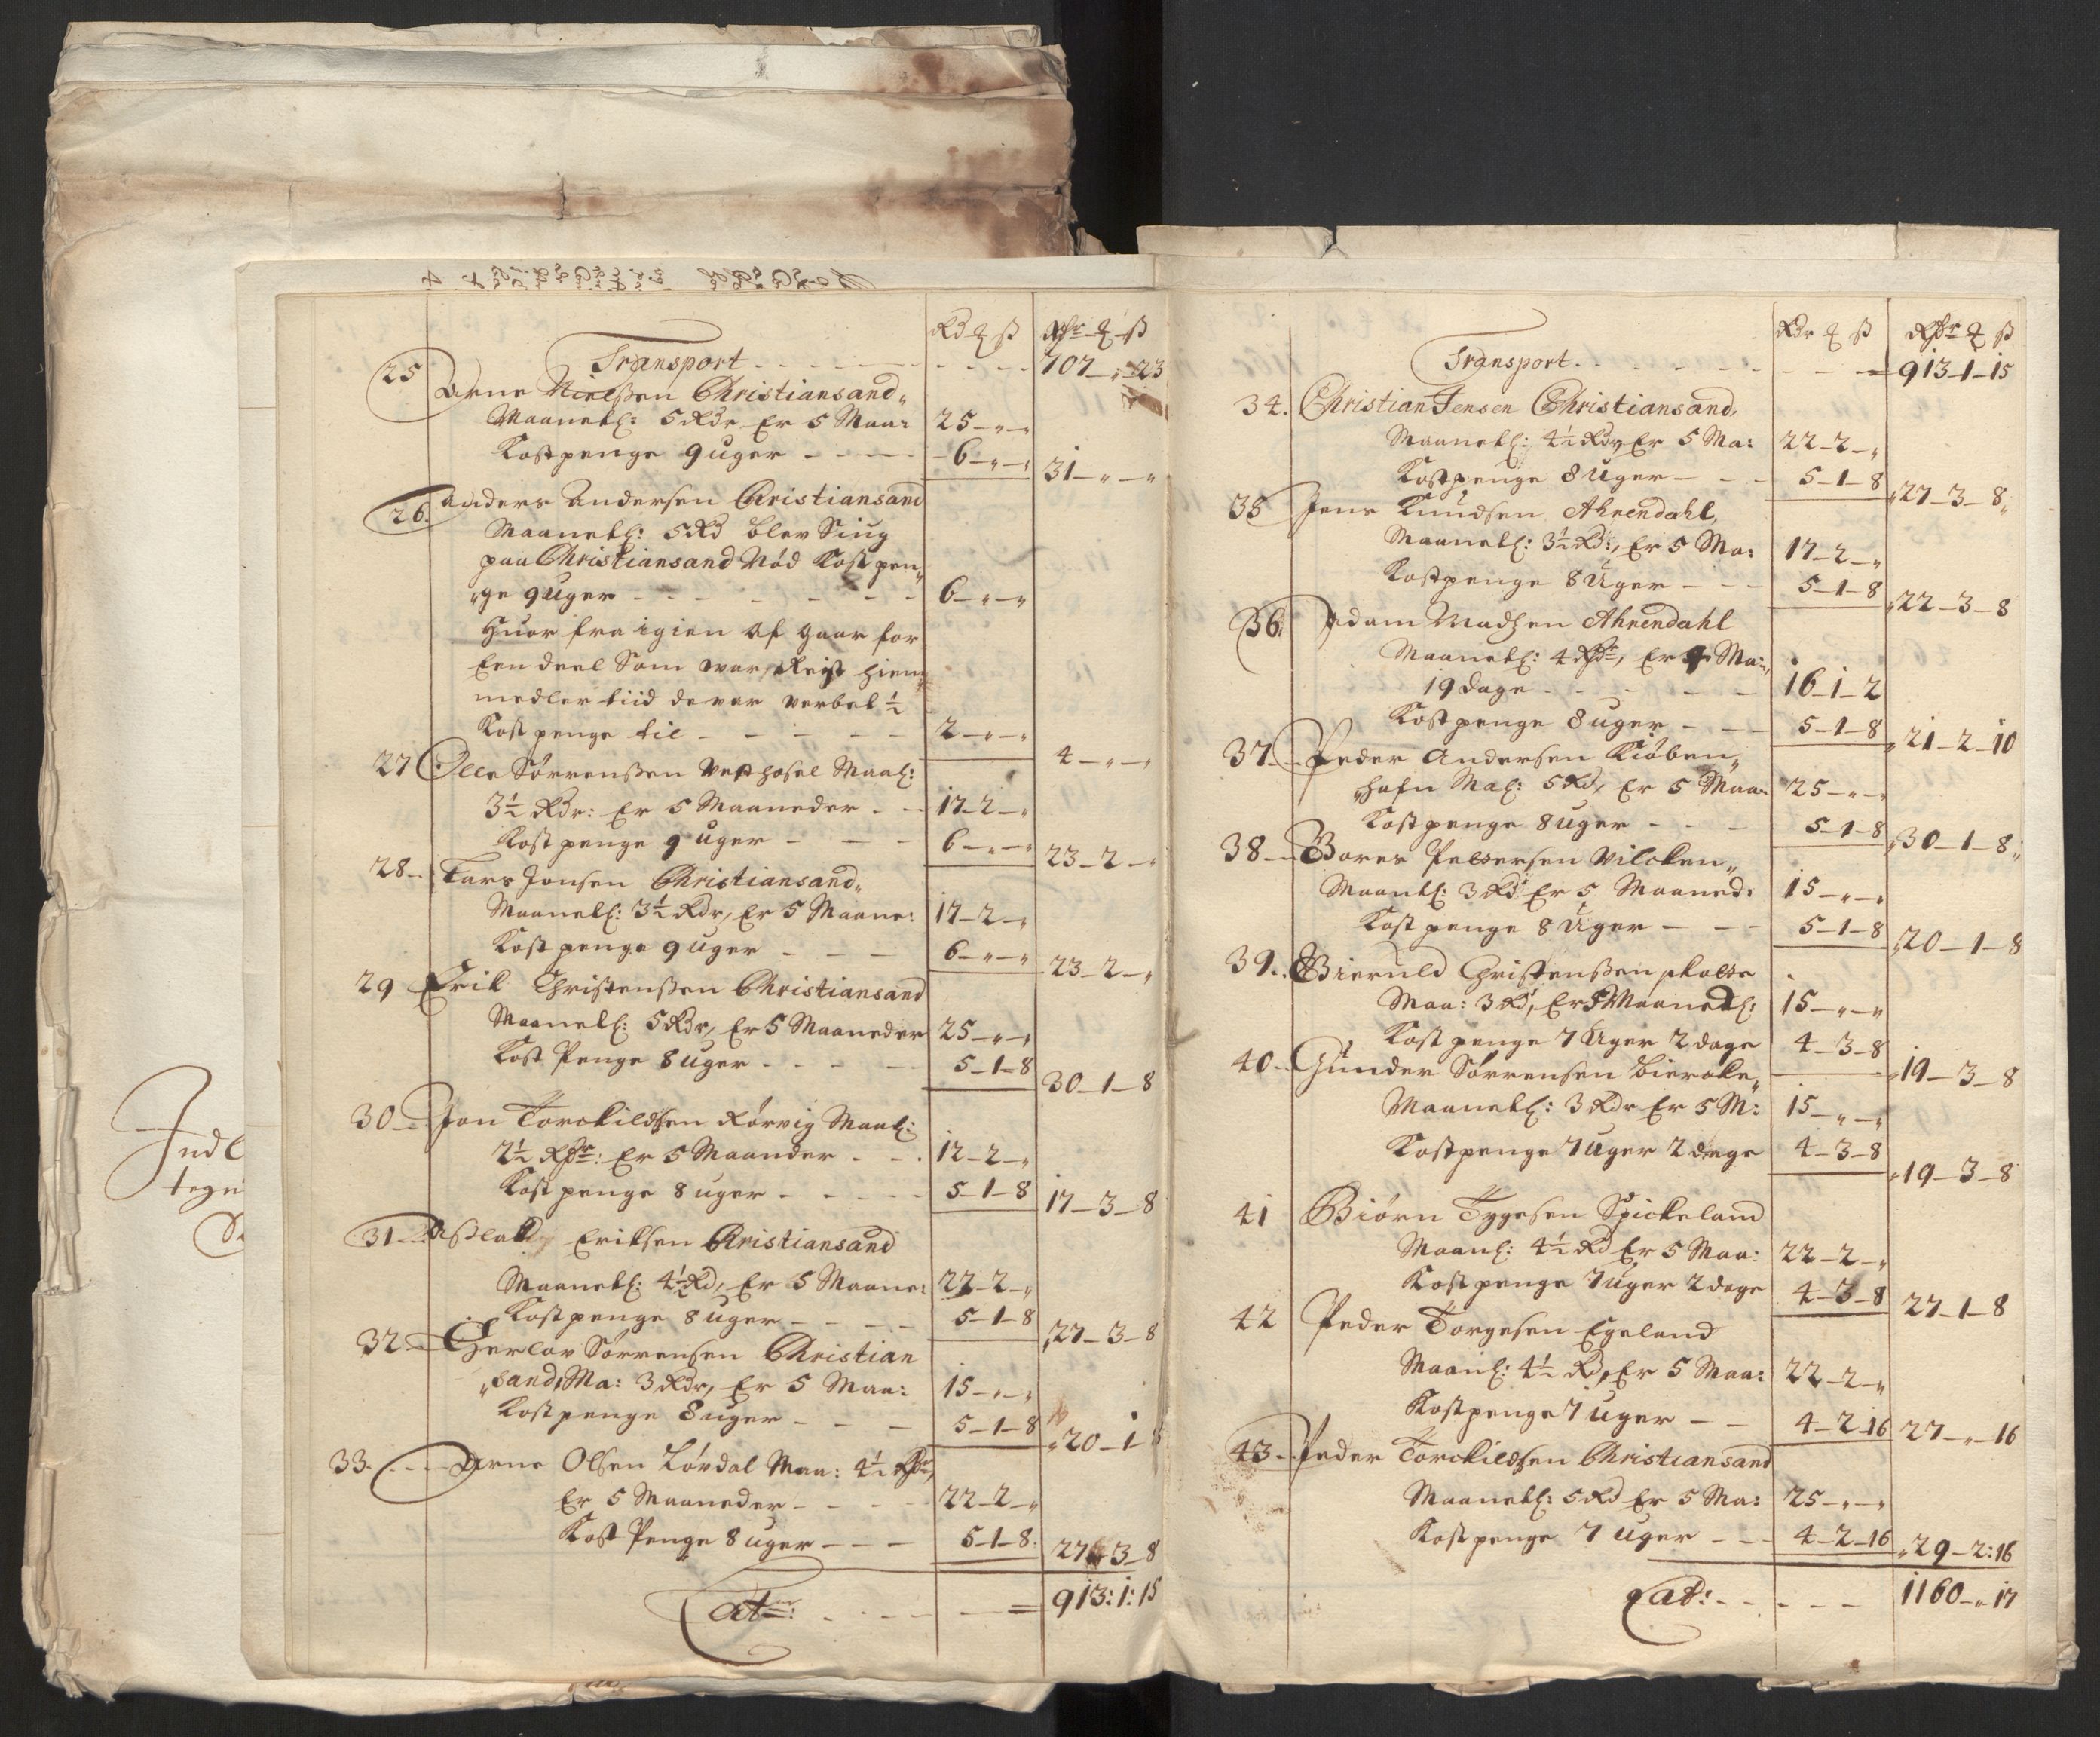 Rd q ß Rdr q ß
Transport 707 - " - 23
25 Arne Nielßen Christiansand
Maanetl: 5 Rdr Er 5 Maa: 25 - " - "
Kostpenge 9 uger 6 - " - " 31 - " - "
26. Anders Andersen Christiansand
Maanetl: 5 Rd blev Siug
paa Christiansand Nød Kostpen„
„ge 9 Uger 6 - " - "
Huor fra igien af gaar for
Een deel Som war Reist hiem
medler tiid de var verbet ½
Kost penge til 2 - " - " 4 - " - "
27 Olle Sørrenßen Maal:
3½ Rdr: Er 5 Maaneder 17 - 2 - "
Kost penge 9 uger 6 - " - " 23 - 2 - "
28 Lars Jonsen Christiansand„
Maanetl: 3½ Rdr, Er 5 Maane: 17 - 2 - "
Kost penge 9 uger 6 - " - " 23 - 2 - "
29 Erik Christenßen Christiansand
Maanetl: 5 Rdr, Er 5 Maaneder 25 - " - "
Kost Penge 8 uger 5 - 1 - 8 30 - 1 - 8
30 Jon Torckildsen Rørvig Maal:
2½ Rdr: Er 5 Maander 12 - 2 - "
Kost penge 8 uger 5 - 1 - 8 17 - 3 - 8
31 Eriksen Christiansand
Maanetl: 4½ Rd, Er 5 Maane: 22 - 2 - "
Kostpenge 8 uger 5 - 1 - 8 27 - 3 - 8
32 Gerlov Sørrensen Christian
„sand, Ma: 3 Rdr, Er 5 Maa: 15 - " - "
Kostpenge 8 uger 5 - 1 - 8 20 - 1 - 8
33. Arne Olsen Løvdal Maa: 4½ Rdr,
Er 5 Maaneder 22 - 2 - "
Kost Penge 8 uger 5 - 1 - 8 27 - 3 - 8
Lat: 913 : 1 : 15
Rdr q ß Rdr q ß
Transport. 913 - 1 - 15
34. Christian Jensen Christiansand,
Maanetl: 4½ Rdr, Er 5 Ma: 22 - 2 - "
Kostpenge 8 Uger 5 - 1 - 8 27 - 3 - 8
35 Jens Knudsen Ahrendahl,
Maanetl: 3½ Rd:, Er 5 Ma: 17 - 2 - "
Kostpenge 8 Uger 5 - 1 - 8 22 - 3 - 8
36. Adam Madsen Ahrendahl
Maanetl: 4 Rdr, Er 4 Ma:,
19 dage 16 - 1 - 2
Kostpenge 8 uger 5 - 1 - 8 21 - 2 - 10
37 Peder Andersen Kiøben„
„hafn Mal: 5 Rd, Er 5 Maa 25 - " - "
Kostpenge 8 uger 5 - 1 - 8 30 - 1 - 8
38 Bores Pettersen Vilcken„
Maantl: 3 Rd Er 5 Maaned: 15 - " - "
Kost penge 8 Uger 5 - 1 - 8 20 - 1 - 8
39. Christenßen
Maa: 3 Rd, Er 5 Maanetl: 15 - " - "
Kost penge 7 Uger 2 dage 4 - 3 - 8 19 - 3 - 8
40 Gunder Sørrensen
Maanetl: 3 Rdr Er 5 M: 15 - " - "
Kostpenge 7 Uger 2 dage 4 - 3 - 8 19 - 3 - 8
41 Biørn Tygesen Spickeland
Maanl: 4½ Rd Er 5 Maa: 22 - 2 - "
Kostpenge 7 uger 2 dage 4 - 3 - 8 27 - 1 - 8
42 Peder Torgesen Egeland
Maanl: 4½ Rd, Er 5 Maa: 22 - 2 - "
Kostpenge 7 uger 4 - 2 - 16 27 - " - 16
43 Peder Torckildsen Christiansand
Maanetl: 5 Rd Er 5 Ma: 25 - " - "
Kostpenge 7 uger 4 - 2 - 16 29 - 2 : 16
Lat: 1160 - " - 17